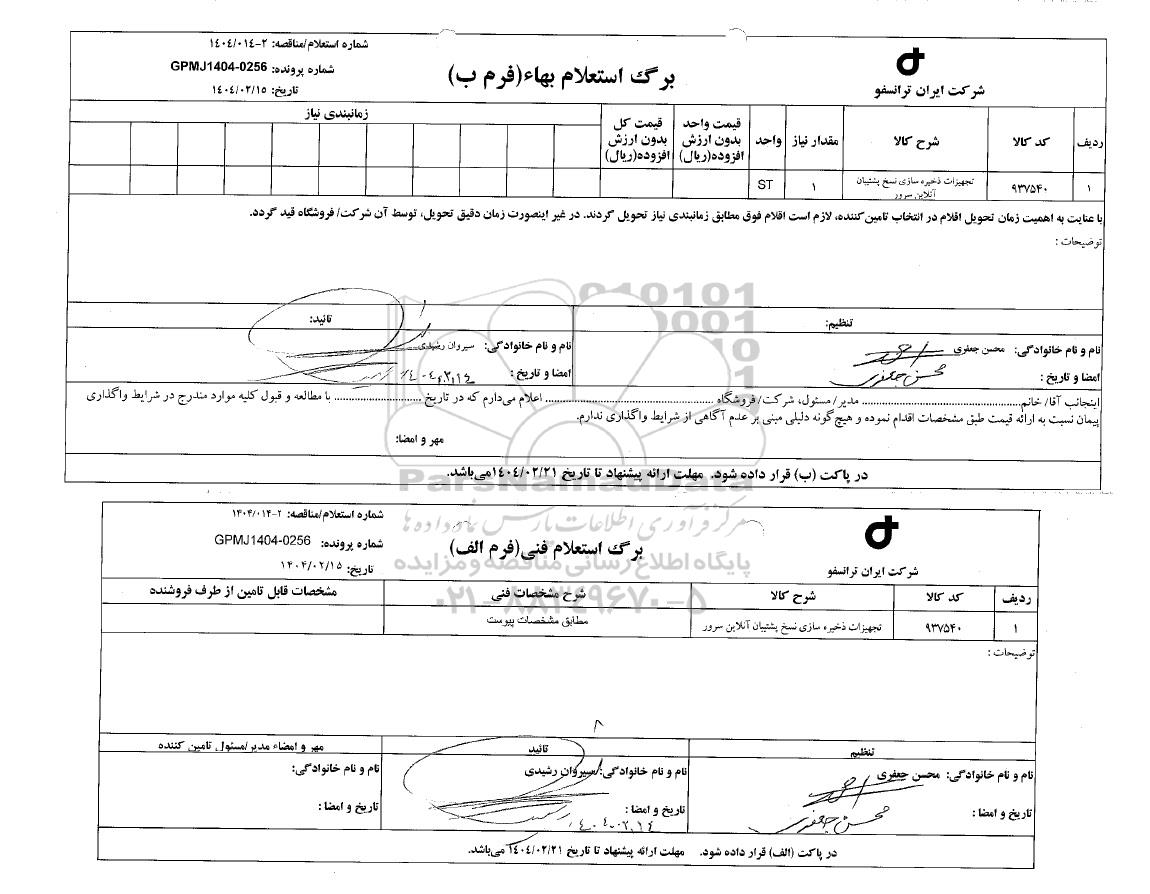 شماره استعلام/مناقصه: ۲-۱٤۰٤/۰۱٤
شماره پرونده: GPMJ1404-0256
تاریخ: ۱٤۰٤/۰۲/۱٥
برگ استعلام بهاء(فرم ب)
شرکت ایران ترانسفو
ردیف کد کالا شرح کالا مقدار نیاز واحد قیمت واحد بدون ارزش افزوده(ریال) قیمت کل بدون ارزش افزوده(ریال) زمانبندی نیاز
۱ ۹۳۷۵۴۰ تجهیزات ذخیره سازی نسخ پشتیبان آنلاین سرور ۱ ST
با عنایت به اهمیت زمان تحویل اقلام در انتخاب تامین‌کننده، لازم است اقلام فوق مطابق زمانبندی نیاز تحویل گردند. در غیر اینصورت زمان دقیق تحویل، توسط آن شرکت/ فروشگاه قید گردد.
توضیحات :
تنظیم: تائید:
نام و نام خانوادگی: محسن جعفری نام و نام خانوادگی: سیروان رشیدی
امضا و تاریخ : محسن جعفری امضا و تاریخ : ۱٤۰٤,۰۲,۱٤
اینجانب آقا/ خانم........................ مدیر/ مسئول، شرکت/ فروشگاه ........................ اعلام می‌دارم که در تاریخ ........................ با مطالعه و قبول کلیه موارد مندرج در شرایط واگذاری
پیمان نسبت به ارائه قیمت طبق مشخصات اقدام نموده و هیچ‌گونه دلیلی مبنی بر عدم آگاهی از شرایط واگذاری ندارم.
مهر و امضا:
در پاکت (ب) قرار داده شود. مهلت ارائه پیشنهاد تا تاریخ ۱٤۰٤/۰۲/۲۱می‌باشد.
ParsNamadData
مرکز فرآوری اطلاعات پارس نماد داده ها
پایگاه اطلاع رسانی مناقصه و مزایده
۰۲۱-۸۸۳۴۹۶۷۰-۵
شماره استعلام/مناقصه: ۲-۱۴۰۴/۰۱۴
شماره پرونده: GPMJ1404-0256
تاریخ: ۱۴۰۴/۰۲/۱۵
برگ استعلام فنی(فرم الف)
شرکت ایران ترانسفو
ردیف کد کالا شرح کالا شرح مشخصات فنی مشخصات قابل تامین از طرف فروشنده
۱ ۹۳۷۵۴۰ تجهیزات ذخیره سازی نسخ پشتیبان آنلاین سرور مطابق مشخصات پیوست
توضیحات :
تنظیم تائید مهر و امضاء مدیر/مسئول تامین کننده
نام و نام خانوادگی: محسن جعفری نام و نام خانوادگی: سیروان رشیدی نام و نام خانوادگی:
تاریخ و امضا : محسن جعفری تاریخ و امضا : ۱٤۰٤,۰۲,۱٤ تاریخ و امضا :
در پاکت (الف) قرار داده شود. مهلت ارائه پیشنهاد تا تاریخ ۱٤۰٤/۰۲/۲۱ می‌باشد.